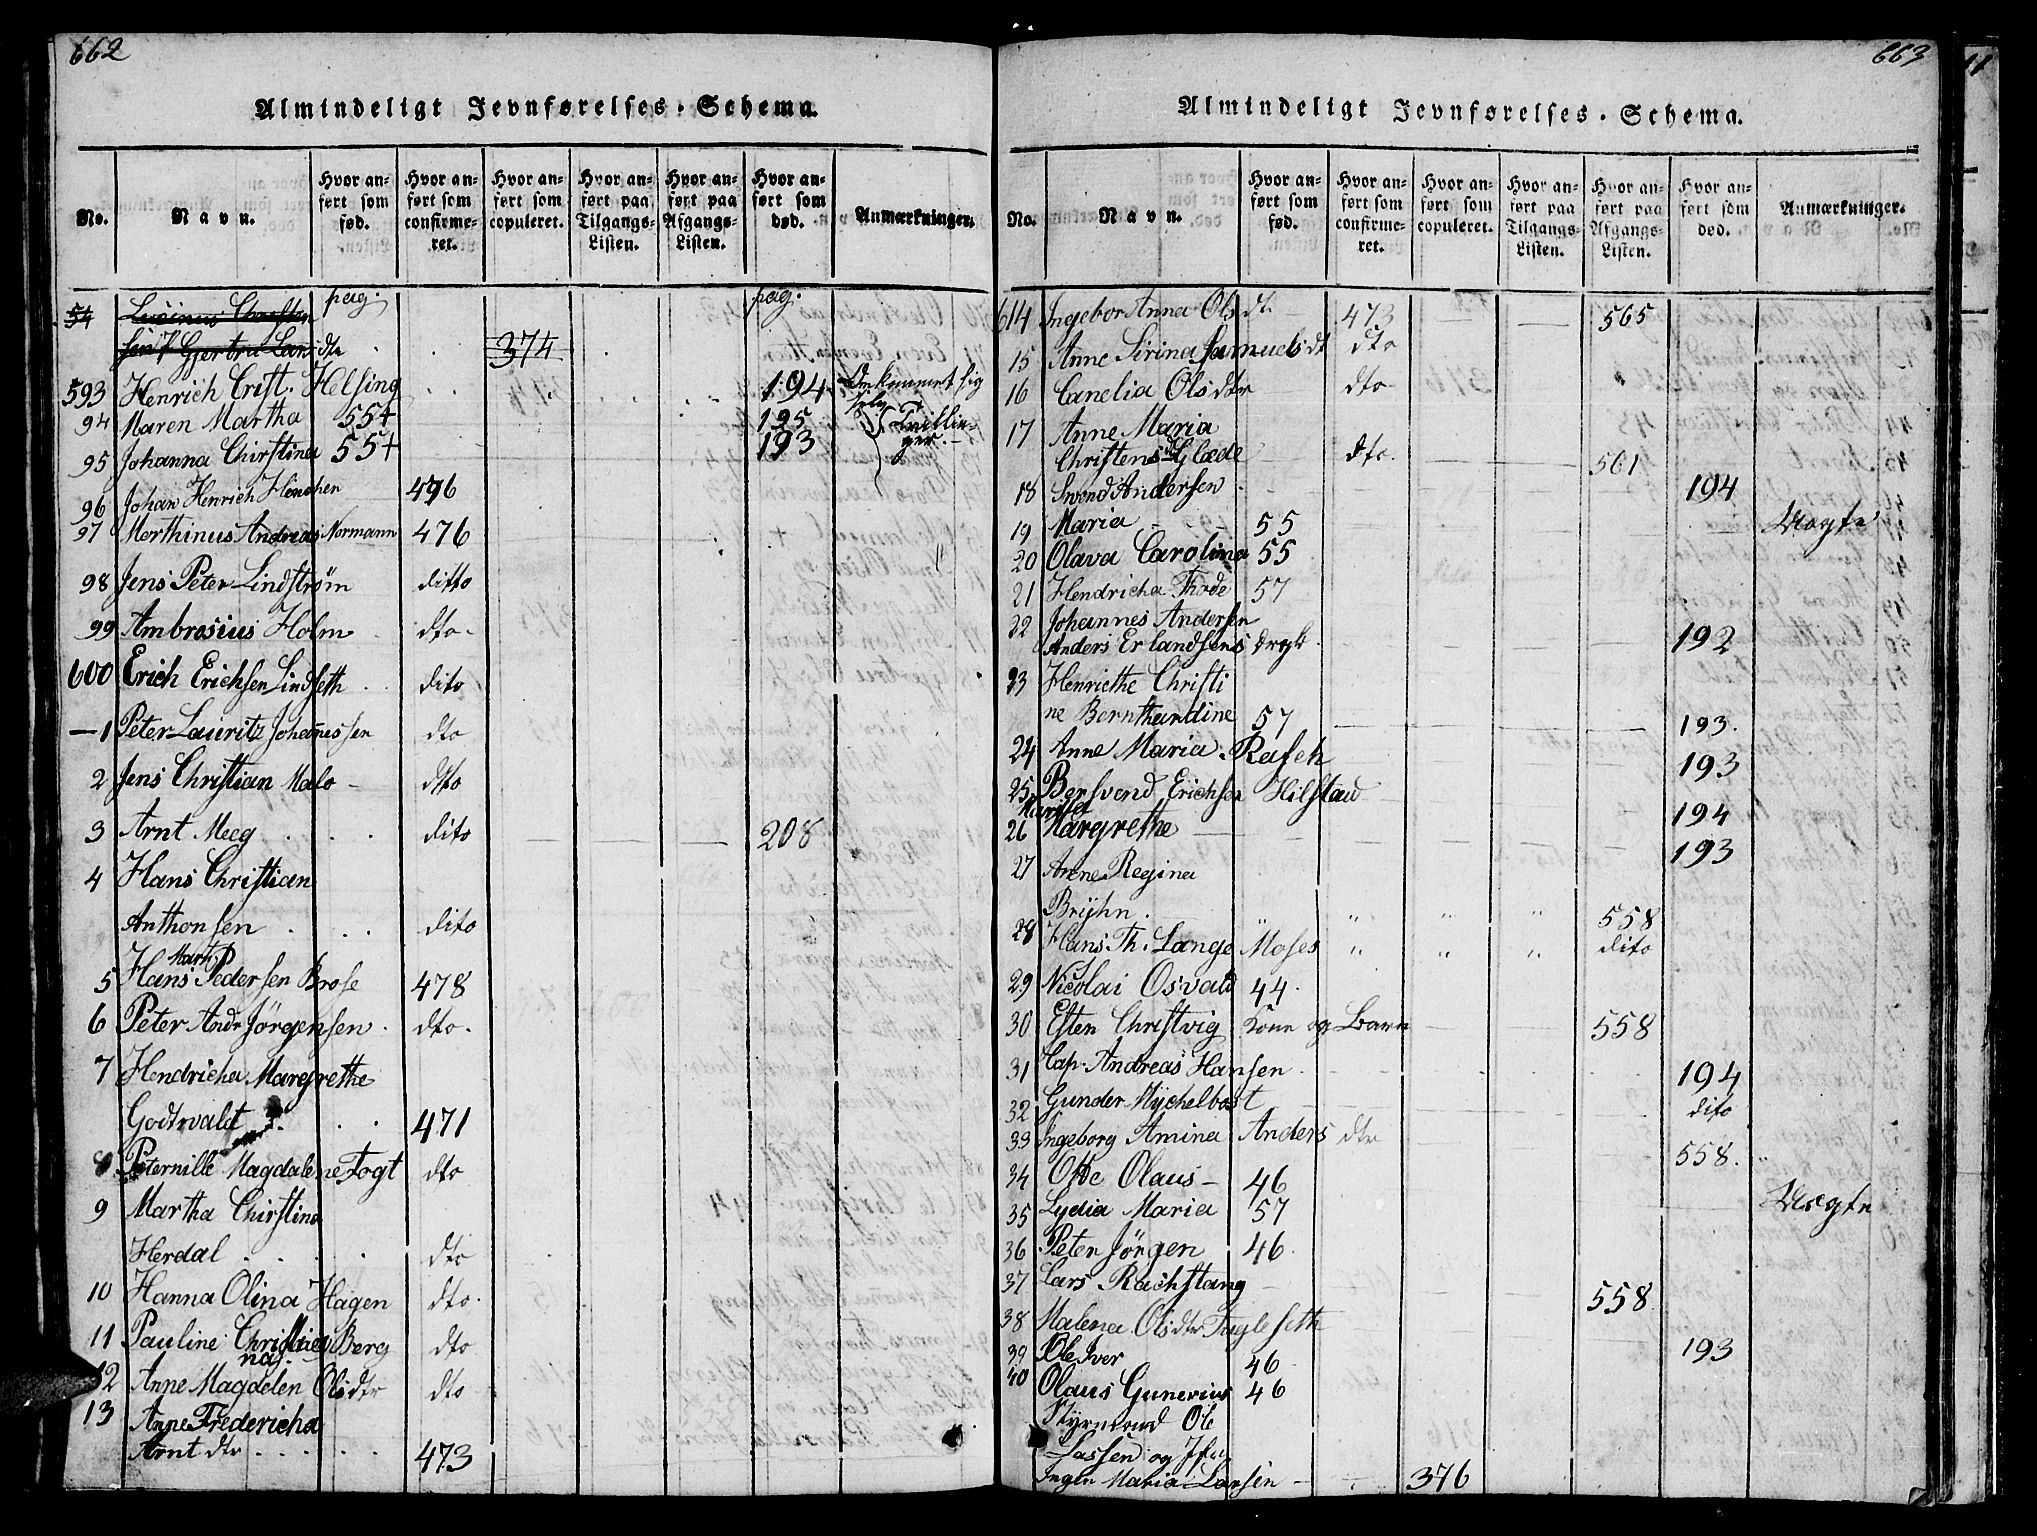 662
Almindeligt Jevnførelses-Schema.
No.
Navn.
Hvor anført som fød.
Hvor anført som confirmeret.
Hvor anført som copuleret.
Hvor anført paa Tilgangs-Listen.
Hvor anført paa Afgangs-Listen.
Hvor anført som død.
Anmærkninger.
pag. pag.
54 Christen
Gjertru Lars dtr 374
593 Henrich Crist. Helsing 194 Omkommet sig selv
94 Maren Martha 554 195 Tvillin-
95 Johanna Chirstina 554 193 ger.
96 Johan Henrich Hinchen 476
97 Morthinus Andreas Normann 476
98 Jens Peter Lindstrøm ditto
99 Ambrosius Holm dto
600 Erich Erichsen Lindseth dito
1 Peter Lauritz Johannessen dto
2 Jens Christian Malo dtto
3 Arnt Meeg dito 208
4 Hans Christian
Anthonsen dito
Mart.
5 Hans Pedersen Brose 478
6 Peter Andr Jørgensen dto.
7 Hendricha Margrethe
Godtvaldt 471
8 Peternille Magdalene Fogt dto
9 Martha Chirstina
Herdal dto
10 Hanna Olina Hagen dto.
11 Pauline Christia Berg dto
na
12 Anne Magdelen Olsdtr dto
13 Anne Fredericha
Arnt dtr 473
663
Almindeligt Jevnførelses-Schema.
No.
Navn.
Hvor anført som fød.
Hvor anført som confirmeret.
Hvor anført som copuleret.
Hvor anført paa Tilgangs-Listen.
Hvor anført paa Afgangs-Listen.
Hvor anført som død.
Anmærkninger.
614 Ingebor Anna Ols dt. 473 565
15 Anne Sirina Samuels dt dto
16 Canelia Olsdtr dto
17 Anne Maria
Christens Glæde dto. 561
18 Svend Andersen 194
19 Maria 55
20 Olava Carolina 55
21 Hendricha Thode 57
22 Johannes Andersen
Anders Erlandsens 192
23 Henriethe Christi
ne Bernthandine 57 193.
24 Anne Maria Rasch 193
25 Bersvend Erichsen Hilstad 194
26 Margrethe 193
27 Anne Regina
Bryhn. " " " " 558
28 Hans Th. Lange Moses " " " dito
29 Nicolai Osvald 44.
30 Esten Christvig Kone og Barn 558
31 Cap. Andreas Hansen 194
32 Gunder Mychelbost dito
33 Ingeborg Amina Anders dtr 558.
34 Otte Olaus 46
35 Lydia Maria 57
36 Peter Jörgen 46.
37 Lars Rachstang 558
38 Malena Olsdtr Fugleseth 193
39 Ole Iver 46
40 Olaus Gunerius 46
Styrmand Ole
Lassen og Jfr
Ingen Maria Larsen 376